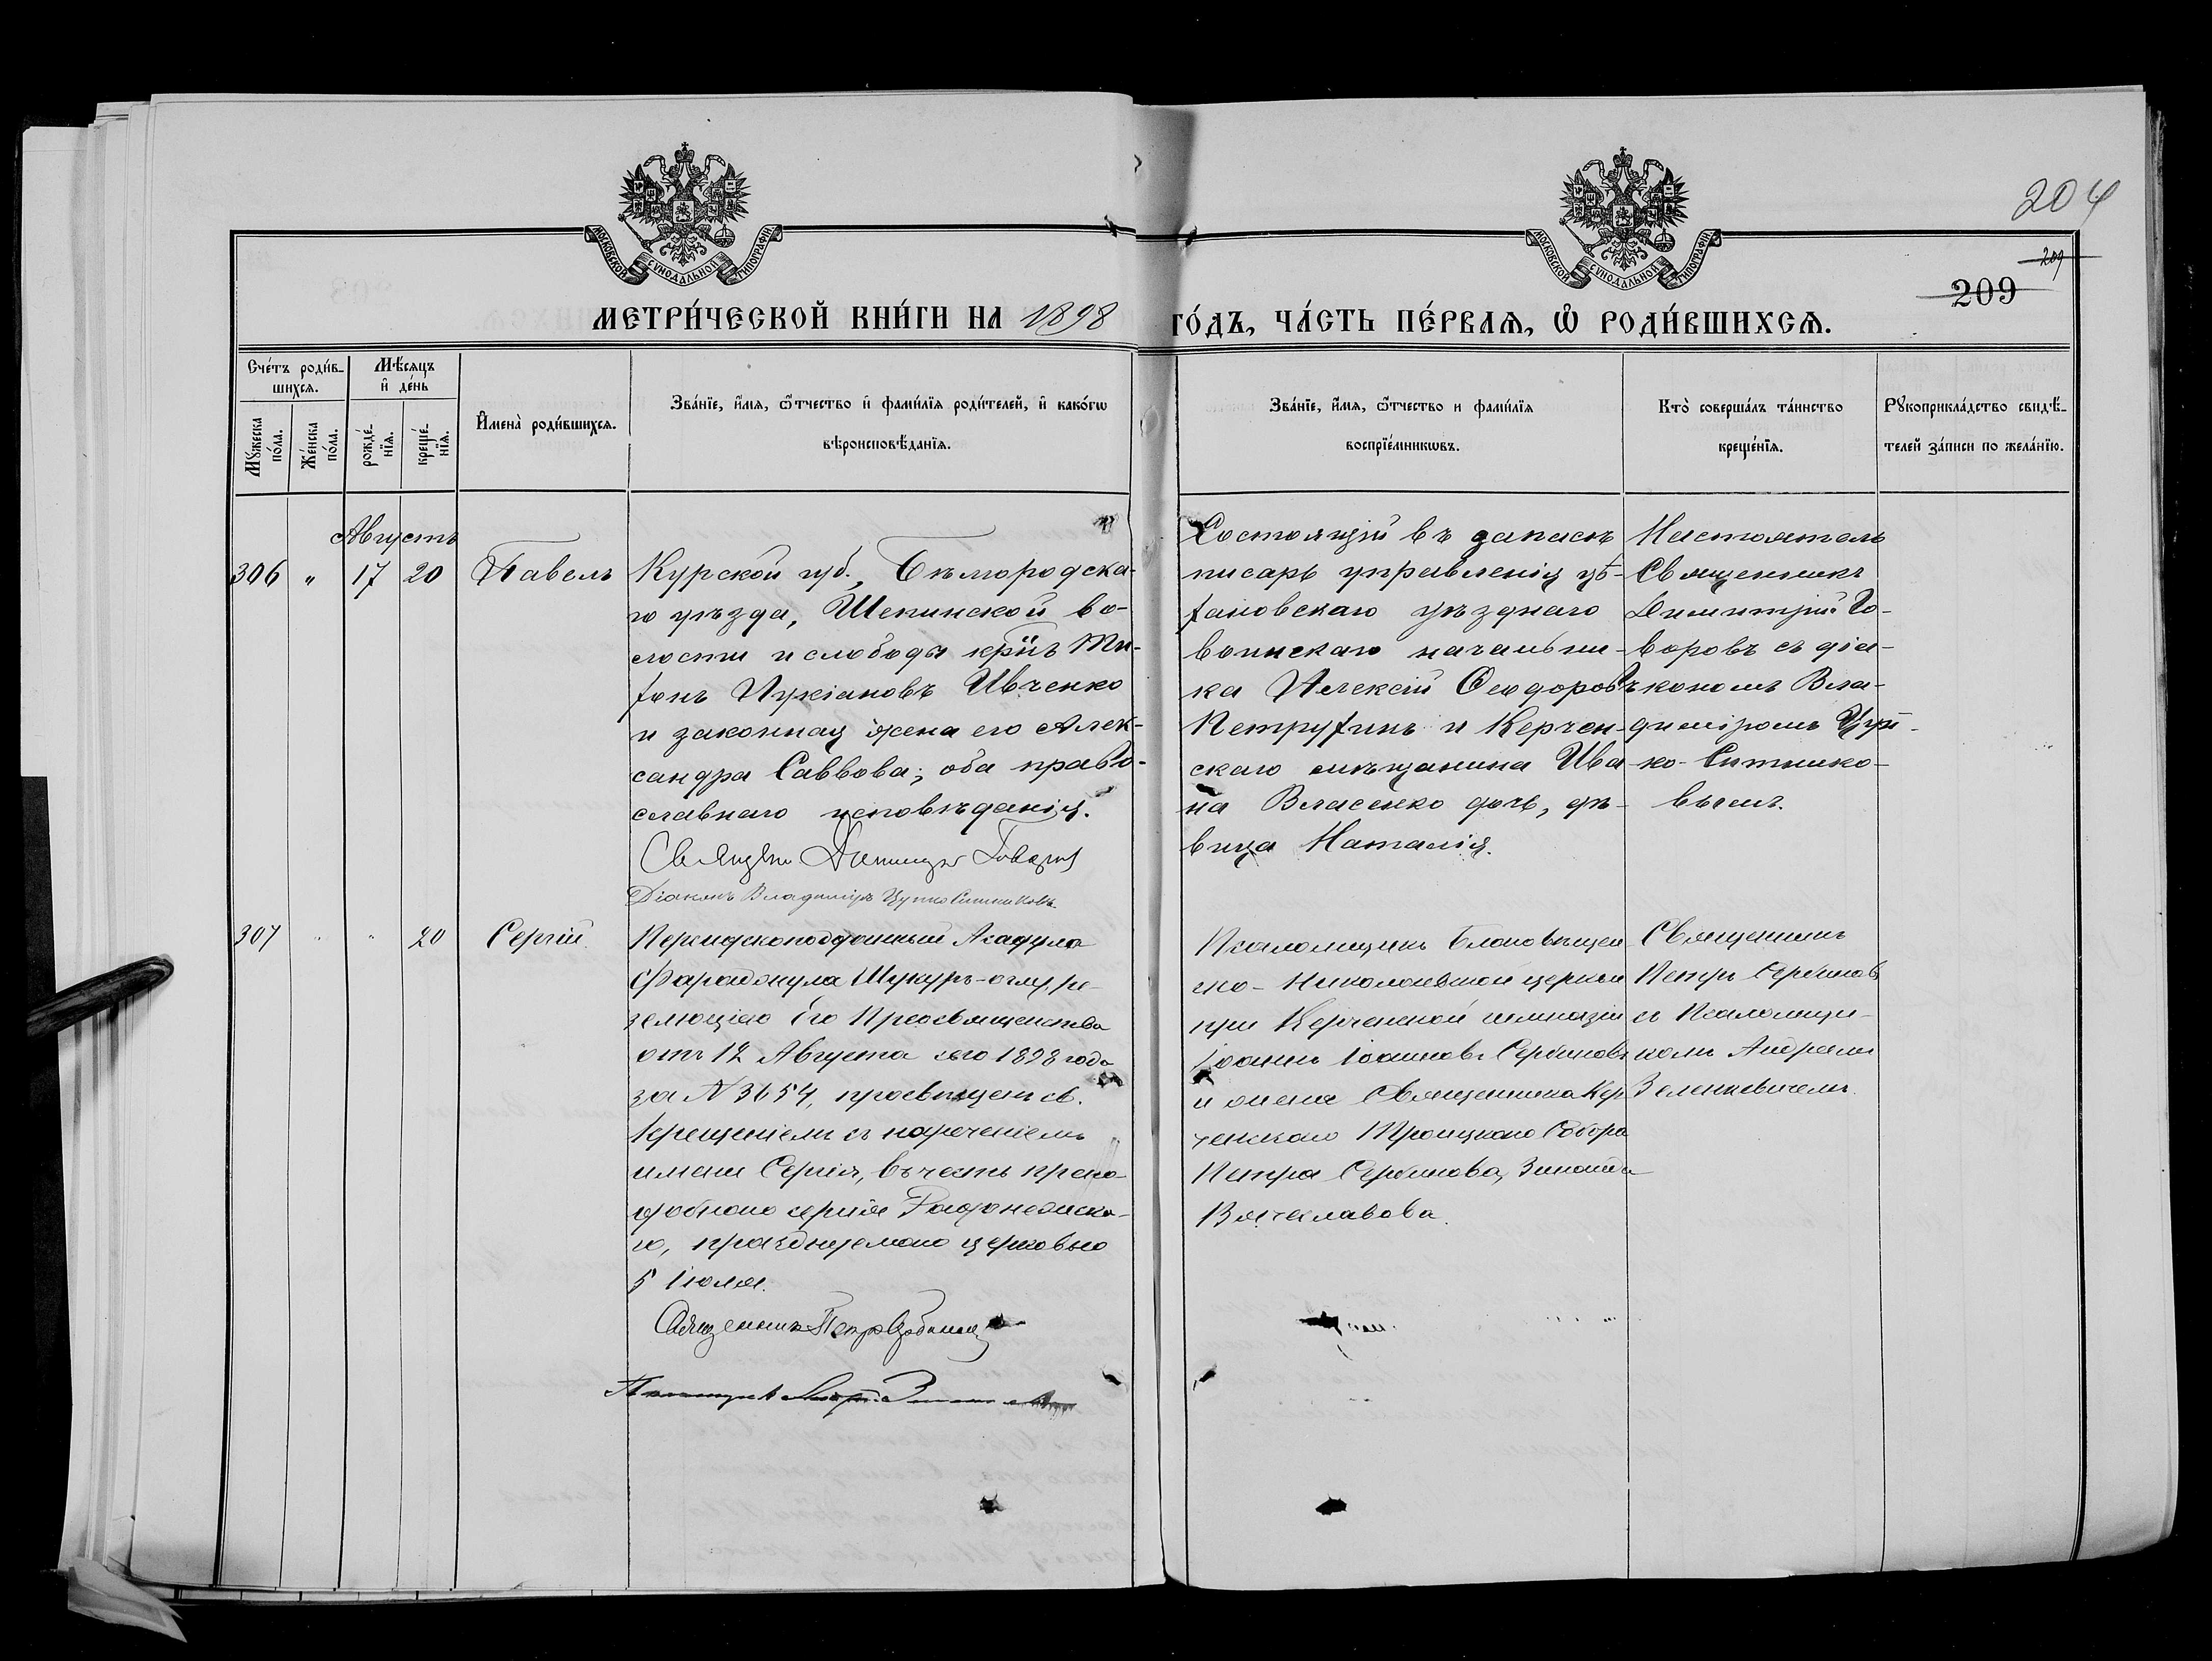 204
209
209
МОСКОВСКОЙ СѴНОДАЛЬНОЙ ТИПОГРАФІИ
МОСКОВСКОЙ СѴНОДАЛЬНОЙ ТИПОГРАФІИ
МЕТРИ́ЧЕСКОЙ КНИ́ГИ НА 1898 ГО́ДЪ, ЧА́СТЬ ПЕ́РВАѦ, Ѡ РОДИ́ВШИХСѦ.
Сче́тъ роди́в-
шихсѧ.
Мꙋжеска по́ла.
Же́нска по́ла.
Мѣ́сѧцъ
и҆ де́нь
рожде́-
нїѧ.
креще́-
нїѧ.
И҆мена̀ роди́вшихсѧ.
Зва́нїе, и҆́мѧ, ѻ҆́тчество и҆ фами́лїѧ роди́телей, и҆ како́гѡ
вѣроисповѣ́данїѧ.
Зва́нїе, и҆́мѧ, ѻ҆́тчество и фами́лїѧ
воспрїе́мникѡвъ.
Кто̀ соверша́лъ та́инство
креще́нїѧ.
Рꙋкоприкла́дство свидѣ́-
телей за́писи по жела́нїю.
Августъ
306 " 17 20 Павелъ
Курской губ., Бѣлгородска-
го уѣзда, Шепинской во-
лости и слободы крнъ Ти-
хонъ Лукіановъ Ивченко
и законная жена его Алек-
сандра Саввова; оба право-
славнаго исповѣданія.
Священ Димитр Говоровъ
Діаконъ Владиміръ Цупко Ситниковъ
Состоящій въ запасѣ
писарь управленія
уѣзднаго
воинскаго начальни-
ка Алексій Ѳеодоровъ
Петрухинъ и Керчен-
скаго мѣщанина Ива-
на Власенко дочь, дѣ-
вица Наталія.
Настоятель
Священникъ
Димитрій Го-
воровъ съ діа-
кономъ Вла-
диміромъ Цуп-
ко-Ситнико-
вымъ.
307 " " 20 Сергій
Персидскоподданный Асадула
Фараджула Шукуръ-оглу, ре-
золюціею Его Преосвященства
отъ 12 Августа сего 1898 года
за N 3654, просвѣщенъ св.
Крещеніемъ съ нареченіемъ
имени Сергія, въ честь препо-
добнаго Сергія Радонежска-
го, празднуемаго церковью
5 Іюля.
Священникъ Петръ Сербиновъ
Псаломщикъ Благовѣщен
ско-Николаевской церкви
при Керченской гимназіи
Іоаннъ Іоанновъ Сербиновъ
и жена Священника Кер
ченскаго Троицкаго Собора
Петра Сербинова, Зинаида
Вячеславова.
Священникъ
Петръ Сербиновъ
съ Псаломщи-
комъ Андреемъ
Зеленкевичемъ.